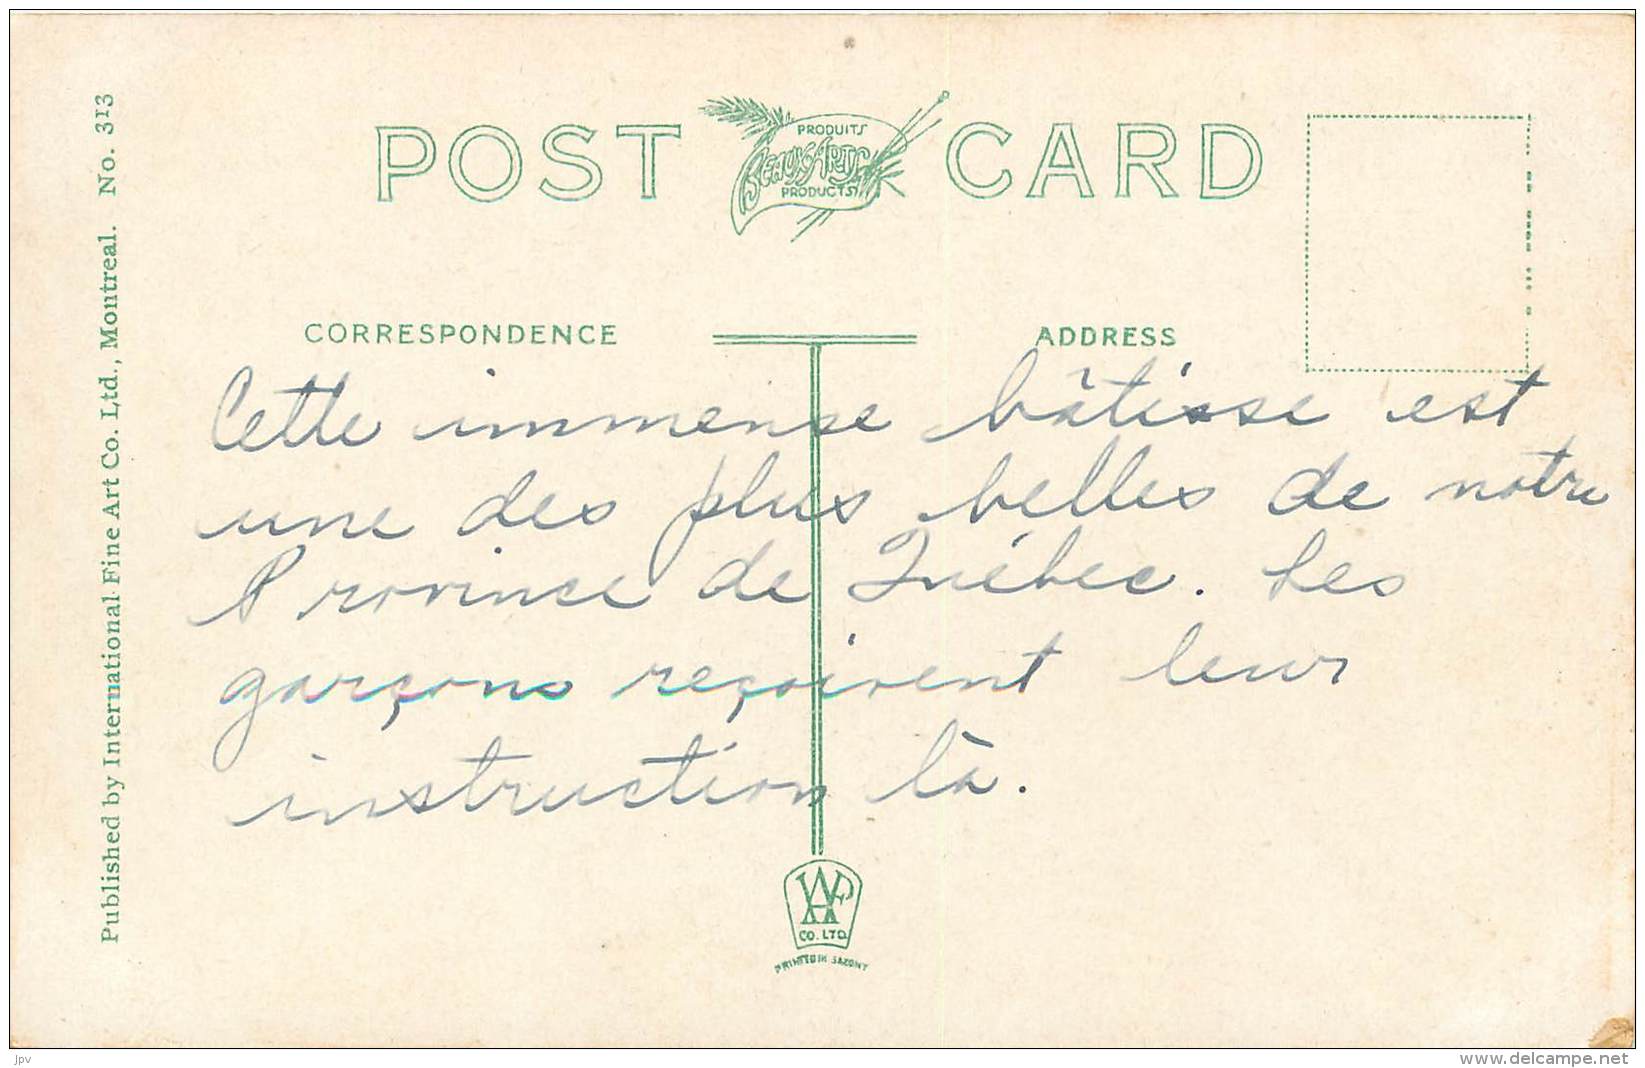 POST CARD
PRODUITS
BEAUX-ARTS
PRODUCTS
Published by International Fine Art Co. Ltd., Montreal. No. 313
CORRESPONDENCE
ADDRESS
Cette immense bâtisse est
une des plus belles de notre
Province de Québec. Les
garçons reçoivent leur
instruction là.
CO. LTD.
PRINTED IN SAXONY
jpv
www.delcampe.net